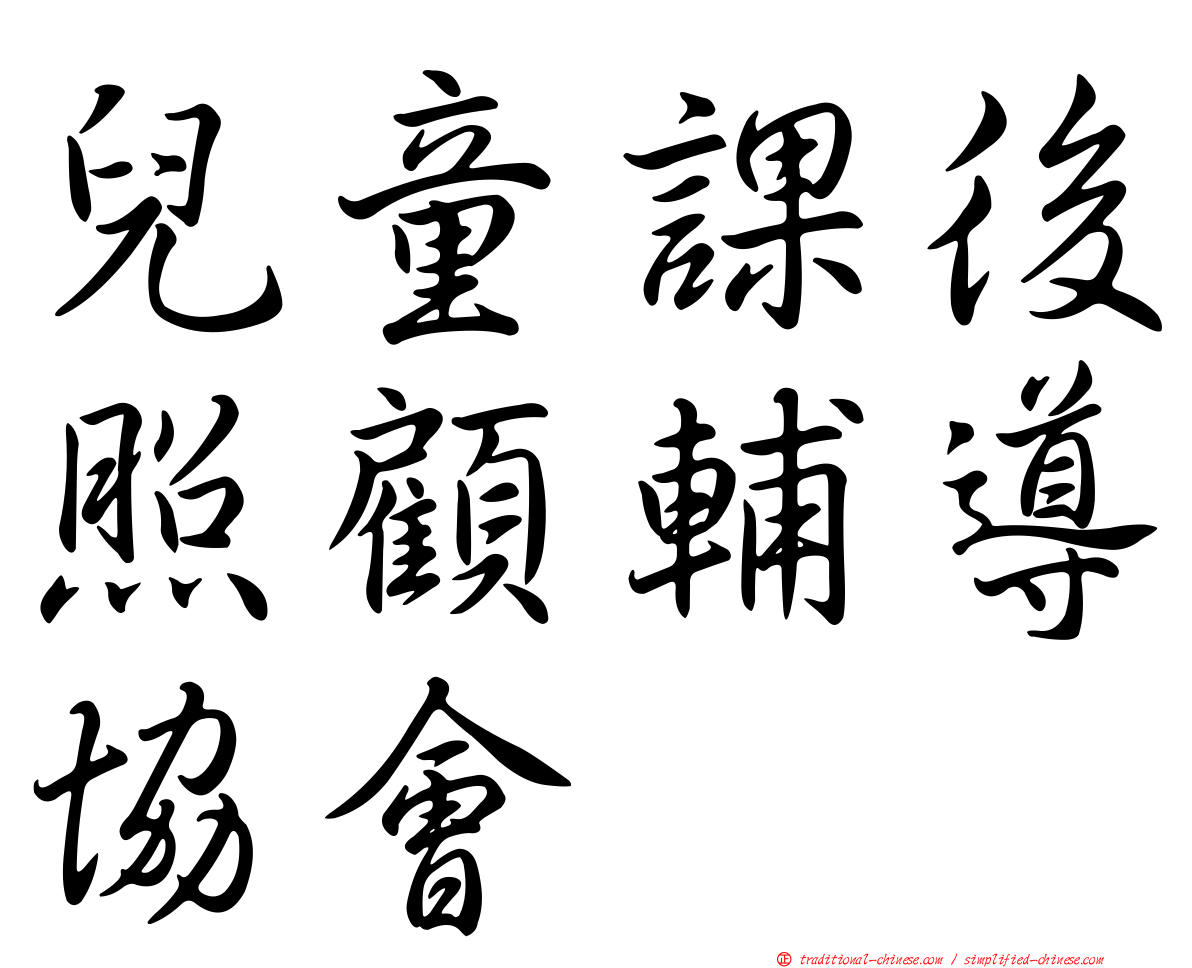 兒童課後
照顧輔導
協會
正 traditional-chinese.com / simplified-chinese.com